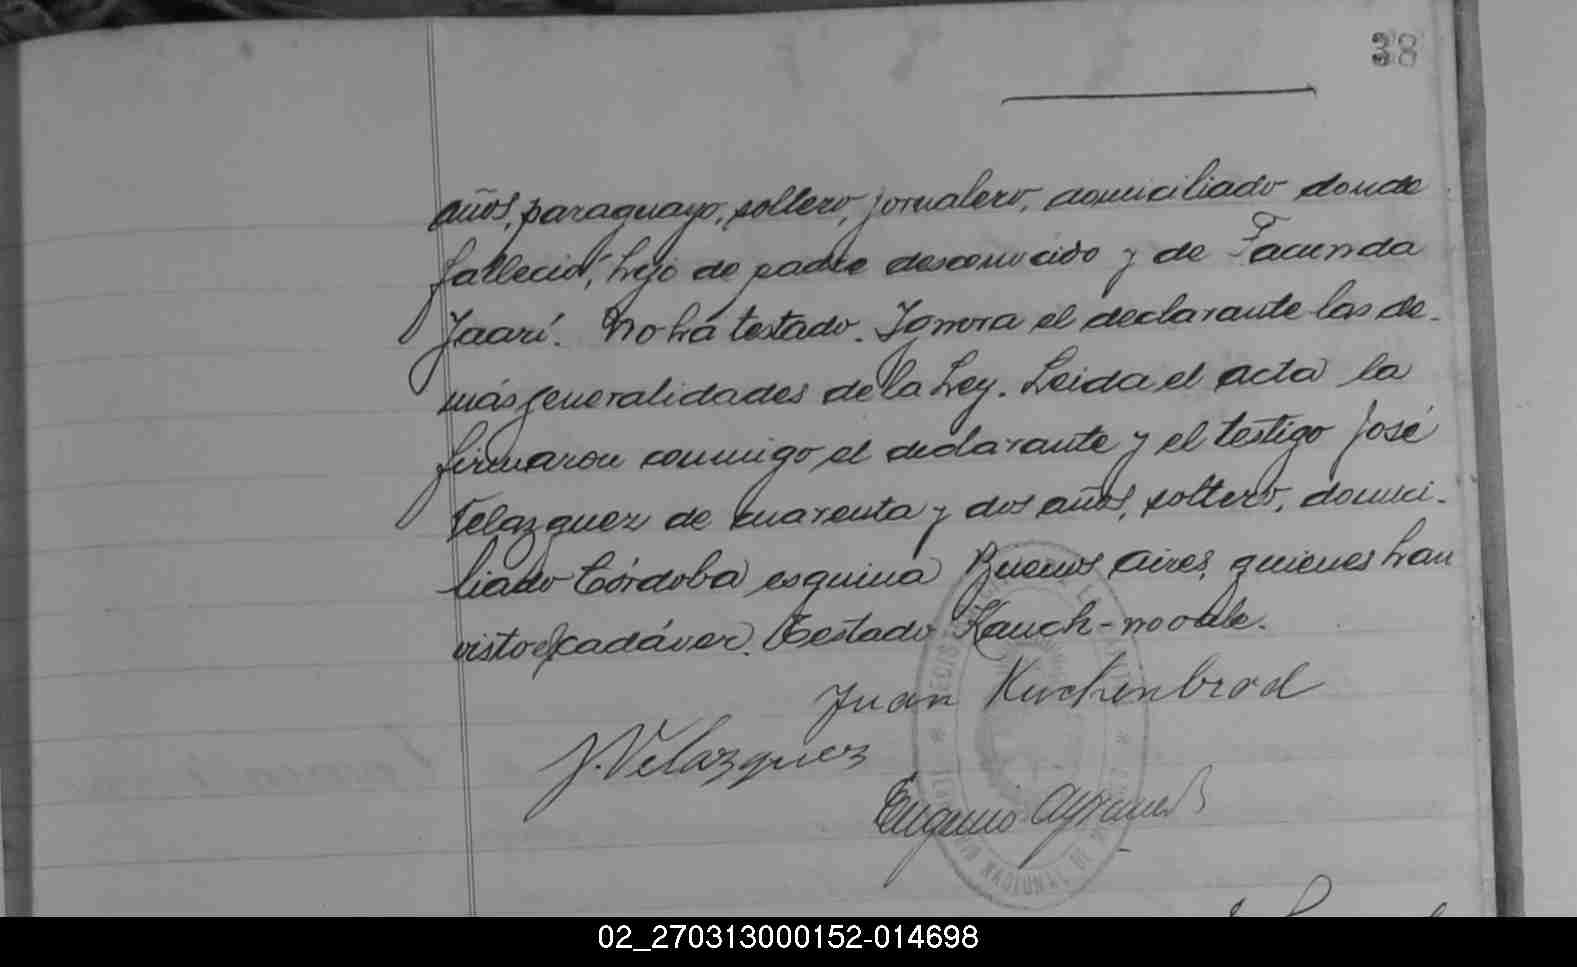 38
años, paraguayo, soltero, jornalero, domiciliado donde
falleció, hijo de padre desconocido y de Facunda
Jaarí. No ha testado. Ignora el declarante las de-
más generalidades de la Ley. Leida el acta la
firmaron conmigo el declarante y el testigo José
Velazquez de cuarenta y dos años, soltero, domici-
liado Córdoba esquina Buenos Aires, quienes han
visto el cadáver. Testado Kauch - no vale.
Juan Kuchenbrod
J. Velazquez
Eugenio
REGISTRO
NACIONAL DE
02_270313000152-014698